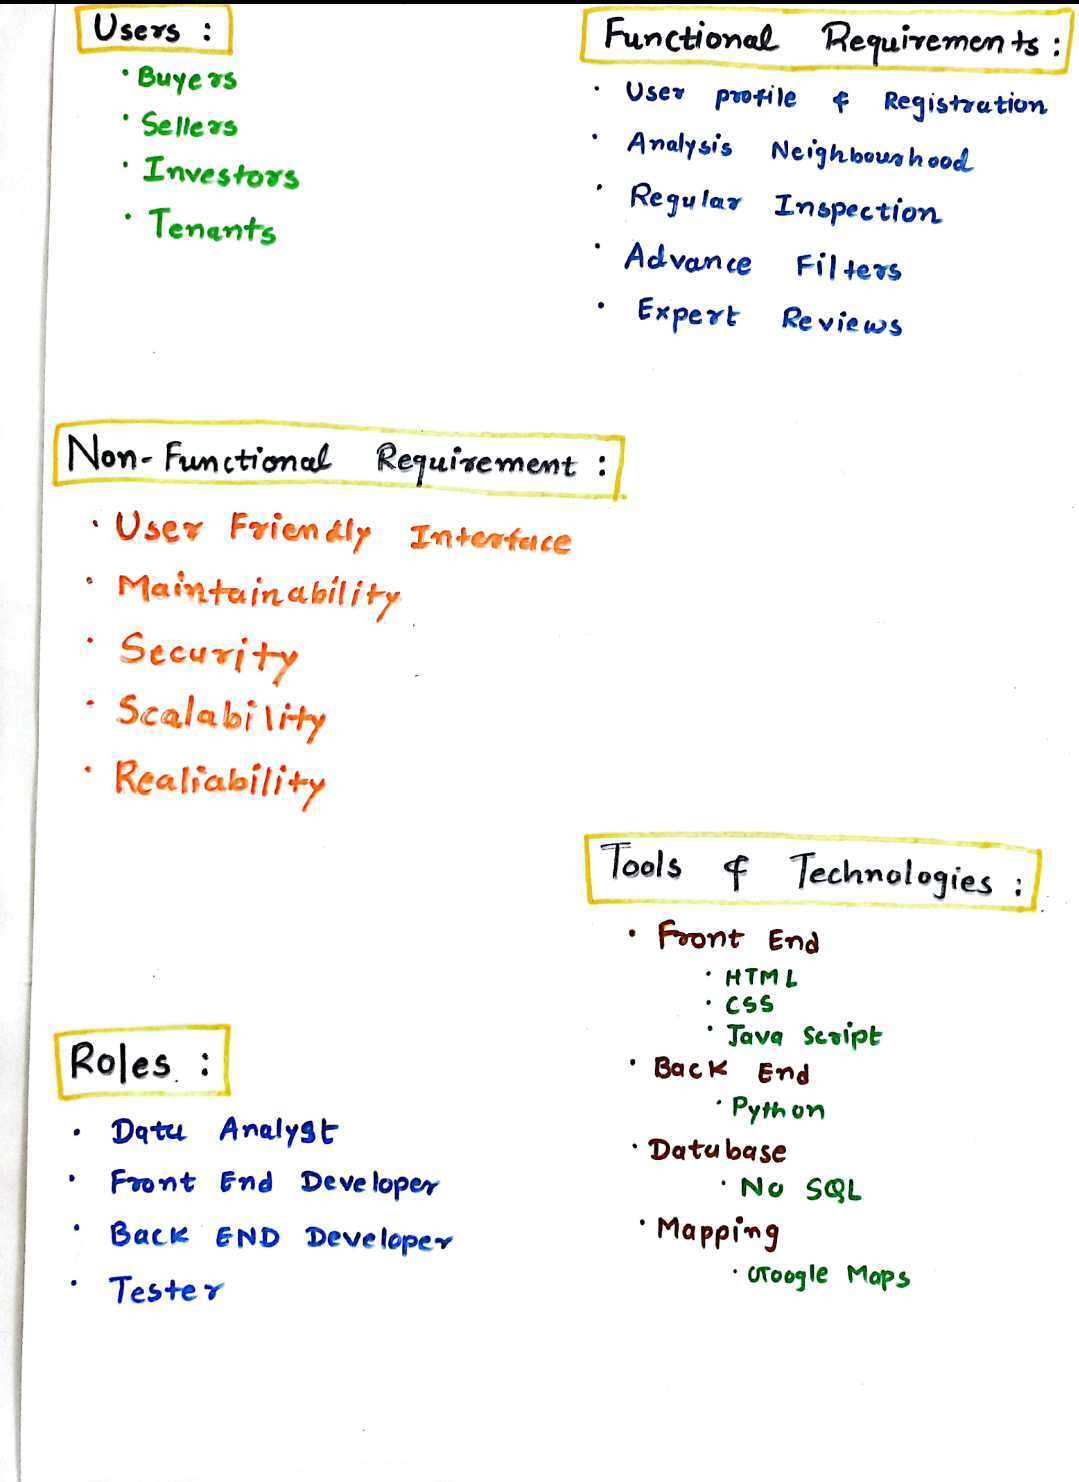 Users :
• Buyers
• Sellers
• Investors
• Tenants
Functional Requirements :
• User profile & Registration
• Analysis Neighbourhood
• Regular Inspection
• Advance Filters
• Expert Reviews
Non-Functional Requirement :
• User Friendly Interface
• Maintainability
• Security
• Scalability
• Realiability
Tools & Technologies :
• Front End
• HTML
• CSS
• Java Script
• Back End
• Python
• Database
• No SQL
• Mapping
• Google Maps
Roles :
• Data Analyst
• Front End Developer
• Back END Developer
• Tester